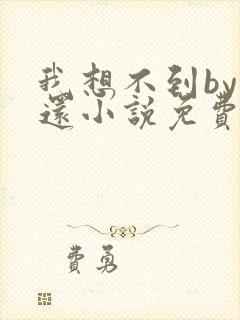 我想不到by
還小說免費
費勇